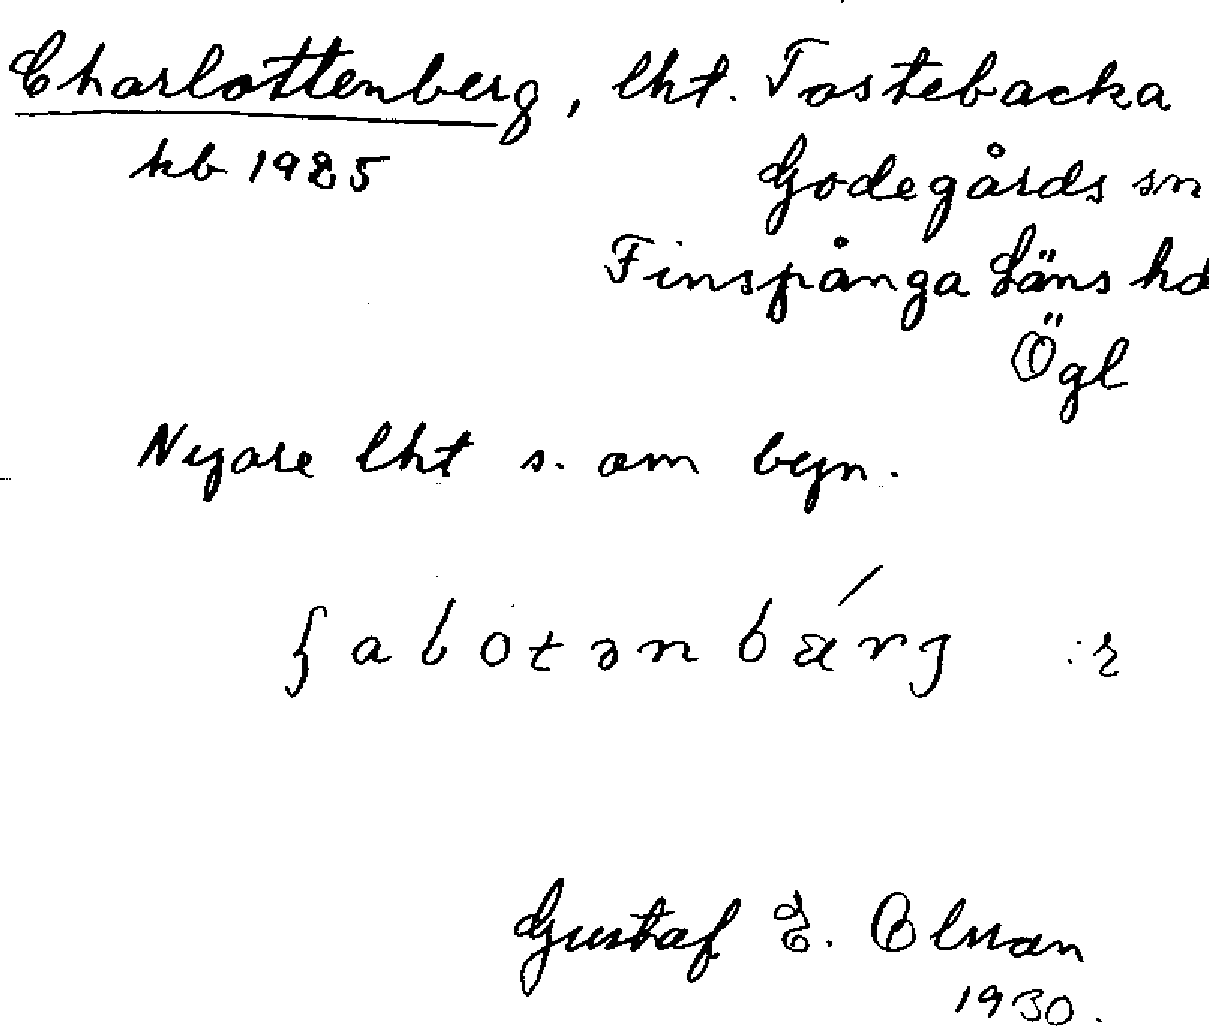 Charlottenberg, lht. Tostebacka
kb 1925
Godegårds sn
Finspånga Läns hd
Ögl
Nyare lht s. om byn.
ʃabotənbä́rj :ɽ
Gustaf E. Elman
1930.